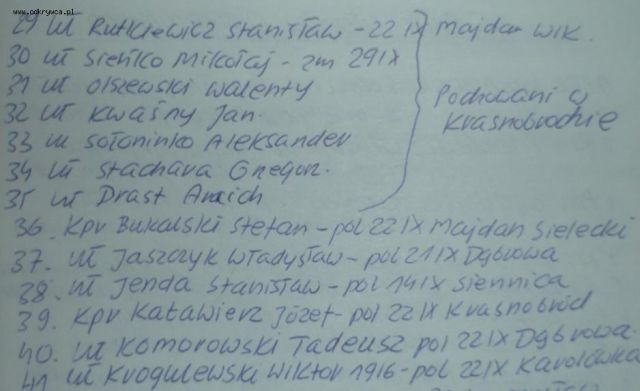 www.odkrywca.pl
29 uł Rutkiewicz Stanisław - 22 IX Majdan Wlk.
30 uł Sieńko Mikołaj - zm 29 IX
31 uł Olszewski Walenty
32 uł Kwaśny Jan.
33 uł Sołoninko Aleksander
34 uł Stachara Grzegorz.
35 uł Drast
Pochowani w
Krasnobrodzie
36. Kpr Bukalski Stefan - pol 22 IX Majdan Sielecki
37. uł Jaszczyk Władysław - pol 21 IX Dąbrowa
38. uł Jenda Stanisław - pol 14 IX Siennica
39. Kpr Katawierz Józef - pol 22 IX Krasnobród
40. uł Komorowski Tadeusz pol 22 IX Dąbrowa
41 uł Krogulewski Wiktor 1916 - pol 22 IX Karolówka